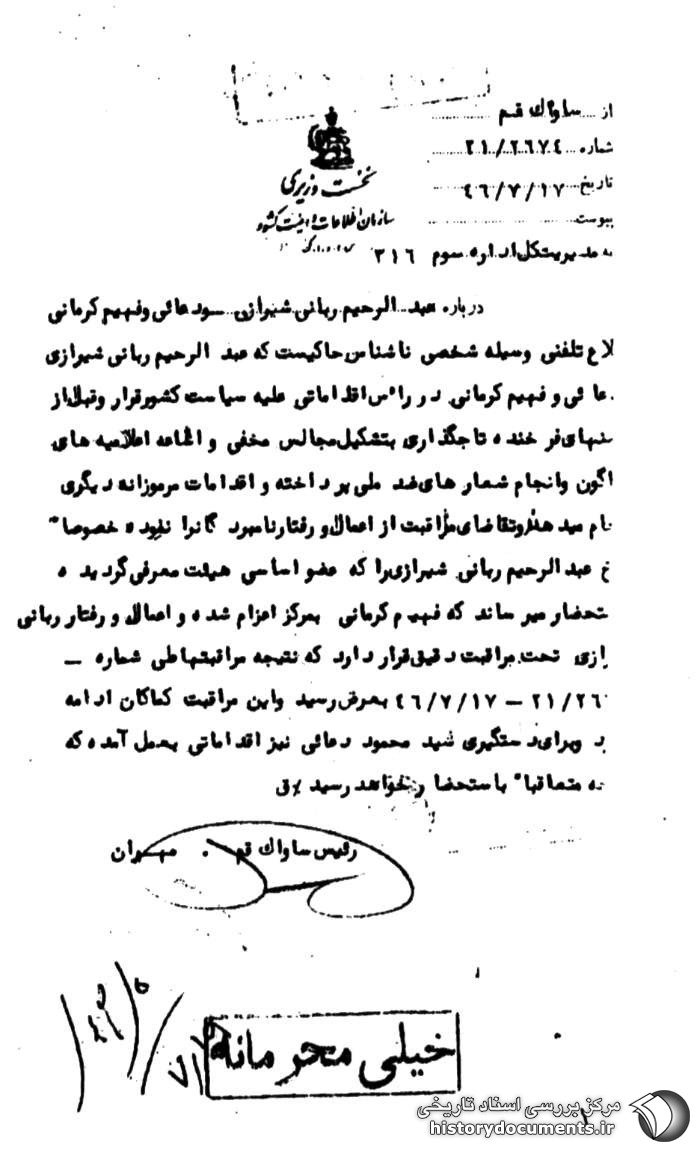 از ساواك قم
شماره ۲۱/۲٦۷٤
تاریخ ٤٦/۷/۱۷
پیوست
نخست وزیری
سازمان اطلاعات و امنیت کشور
به مدیریتکل اداره سوم ۳۱٦
درباره عبد الرحیم ربانی شیرازی ـ سود عائی وفهیم کرمانی
لاع تلفنی وسیله شخصی ناشناس حاکیست که عبد الرحیم ربانی شیرازی
عا ئی و فهیم کرمانی در راس اقداماتی علیه سیاست کشور قرار وقبل از
نهای فر خنده تاجگذاری بتشکیل مجالس مخفی و اعلامیه های
اگون وانجام شعار های ضد ملی پر داخته و اقدامات مرموزانه دیگری
نام مید هد وتقاضای مراقبت از اعمال و رفتار نامبرد گانرا نموده خصوصا"
خ عبد الرحیم ربانی شیرازی را که عضو اساسی هیئت معرفی گردید ه
ستحضار میر ساند که فهیم کرمانی بمرکز اعزام شده و اعمال و رفتار ربانی
ازی تحت مراقبت دقیق قرار دارد که نتیجه مراقبتها طی شماره ـ
۲۱/۲٦ – ٤٦/۷/۱۷ بعرض رسید واین مراقبت کماکان ادامه
د وبرای دستگیری سید محمود دعائی نیز اقداماتی بعمل آمده که
ه متعاقبا" باستحضا ر خواهد رسید
رئیس ساواك قم . مهران
خیلی محرمانه
مرکز بررسی اسناد تاریخی
historydocuments.ir